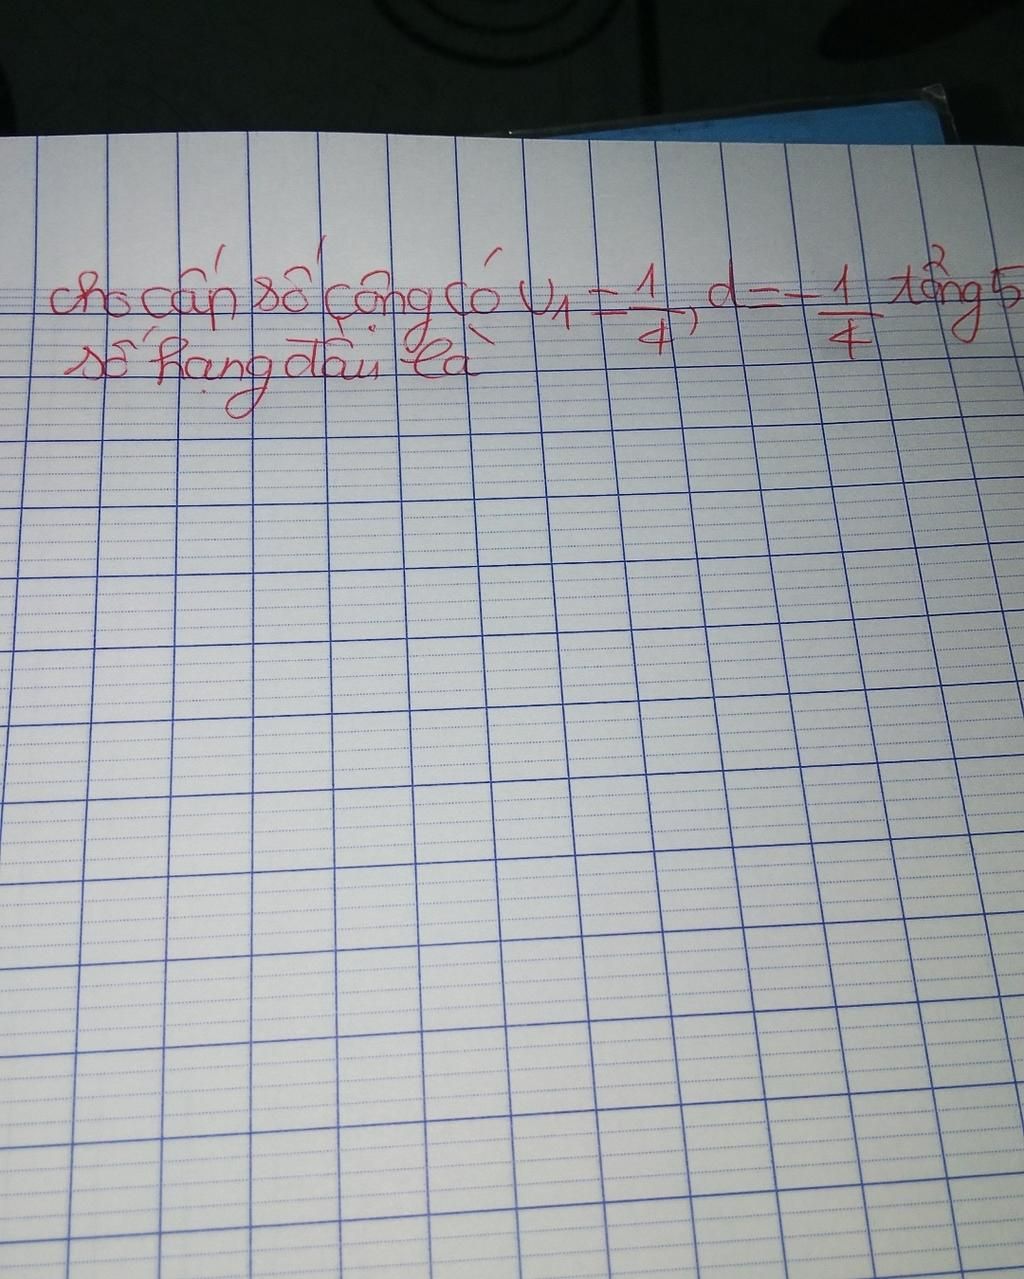 cho cấp số cộng có U₁ = 1/4, d = -1/4 tổng 5
số hạng đầu là